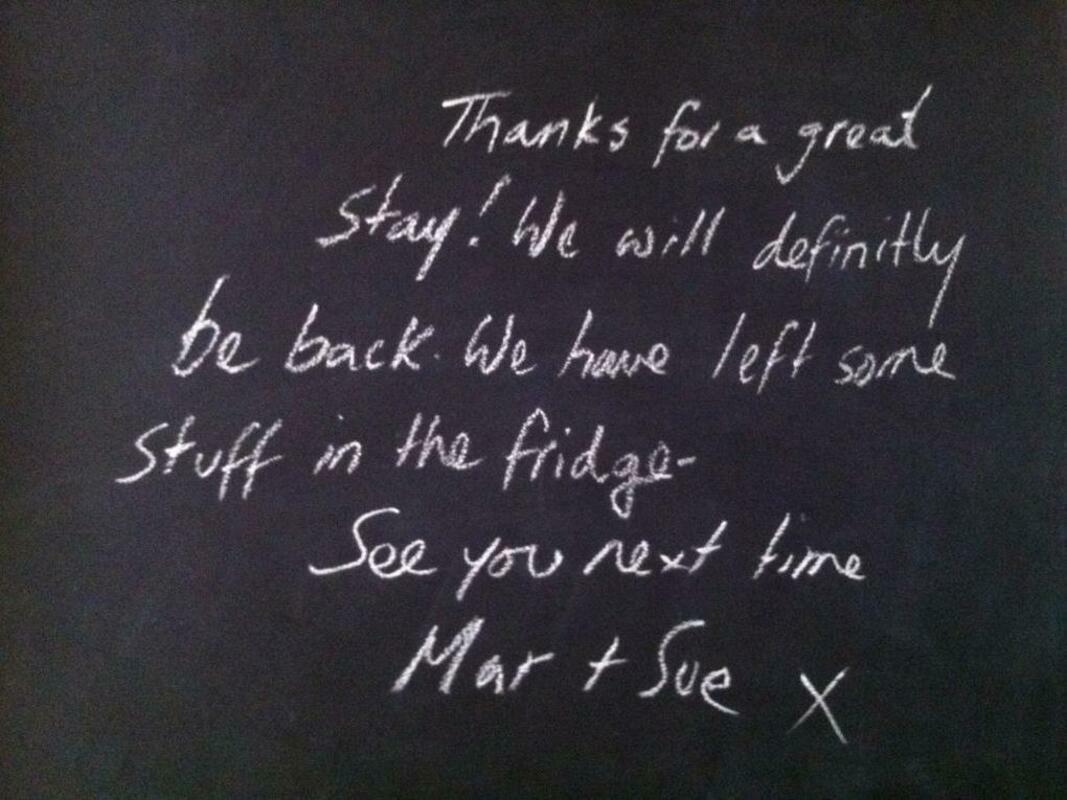 Thanks for a great
Stay! We will definitly
be back. We have left some
stuff in the fridge-
See you next time
Mar + Sue X